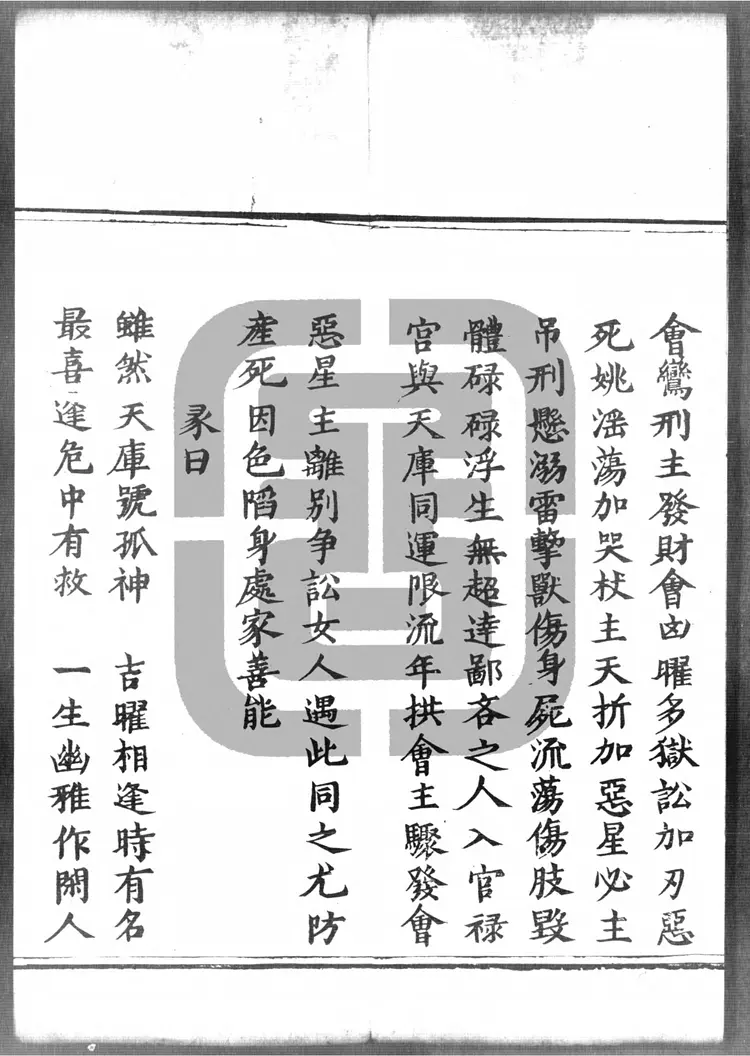 會鸞刑主發財會凶曜多獄訟加刃惡
死姚滛蕩加哭杖主天折加惡星必主
吊刑懸溺雷擊獸傷身屍流蕩傷肢毀
體碌碌浮生無超達鄙吝之人入官禄
宮與天庫同運限流年拱會主驟發會
惡星主離别争訟女人遇此同之尤防
產死因色陷身處家善能
彖曰
雖然天庫號孤神 吉曜相逢時有名
最喜逢危中有救 一生幽雅作閑人